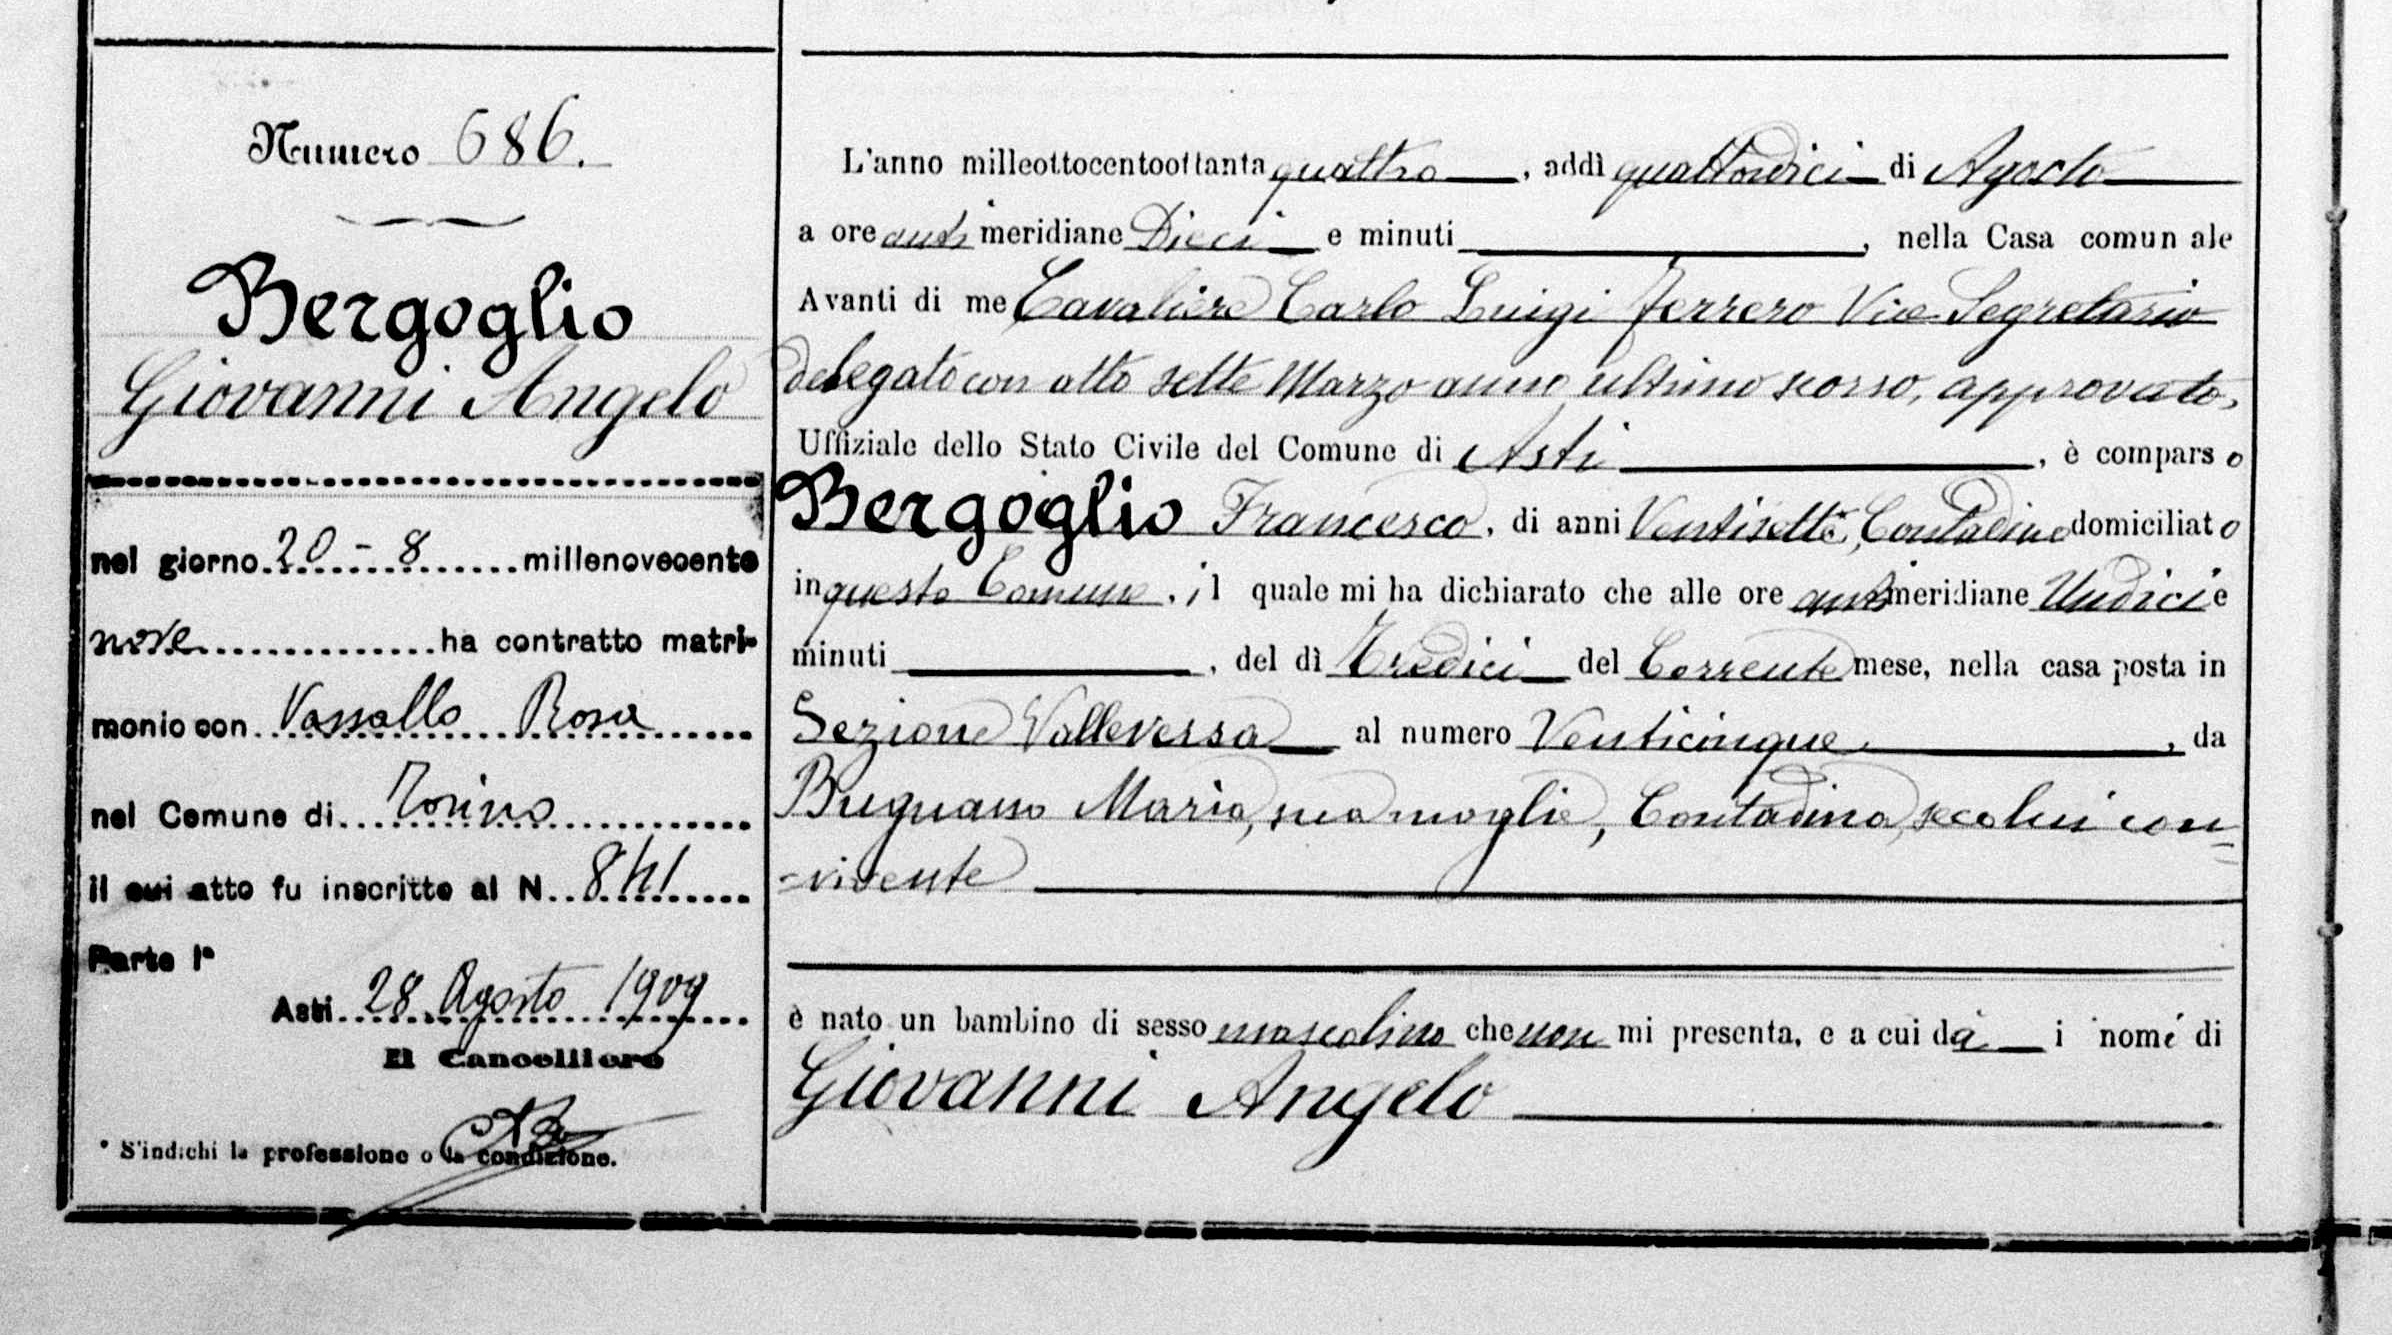 Numero 686.
Bergoglio
Giovanni Angelo
nel giorno 20 - 8 millenovecento
nove ha contratto matri-
monio con Vassallo Rosa
nel Comune di Torino
il cui atto fu inscritto al N. 841
Parte Iª
Asti 28 Agosto 1909
Il Cancelliere
* S'indichi la professione o la condizione.
L'anno milleottocentoottanta quattro, addì quattordici di Agosto
a ore anti meridiane Dieci e minuti , nella Casa comunale
Avanti di me Cavaliere Carlo Luigi Ferrero Vice Segretario
delegato con atto sette Marzo anno ultimo scorso, approvato,
Uffiziale dello Stato Civile del Comune di Asti , è comparso
Bergoglio Francesco, di anni Ventisette, Contadino domiciliato
in questo Comune, il quale mi ha dichiarato che alle ore anti meridiane Undici e
minuti , del dì Tredici del Corrente mese, nella casa posta in
Sezione Valleversa al numero Venticinque, da
Bugnano Maria, sua moglie, Contadina, seco lui con=
=vivente
è nato un bambino di sesso mascolino che non mi presenta, e a cui dà i nomi di
Giovanni Angelo